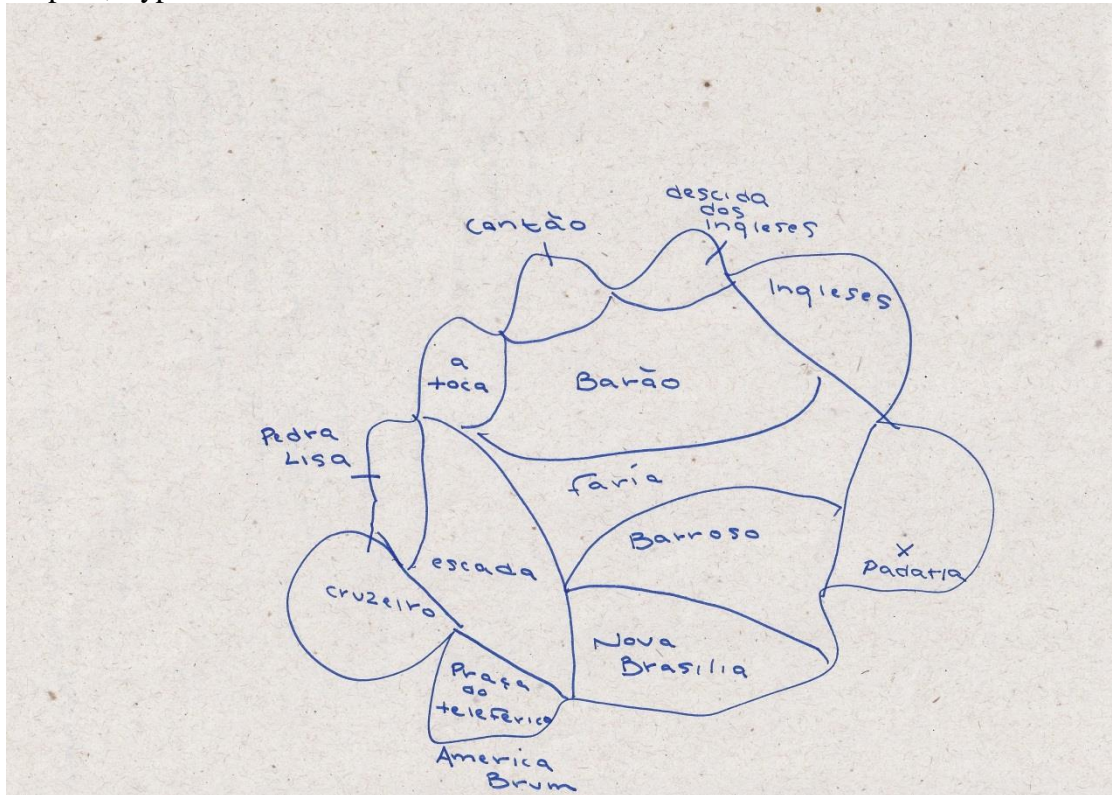 descida
dos
Ingleses
Cantão
Ingleses
a
toca
Barão
Pedra
Lisa
faría
Barroso
escada
x
Padaria
cruzeiro
Nova
Brasília
Praça
do
teleférico
America
Brum